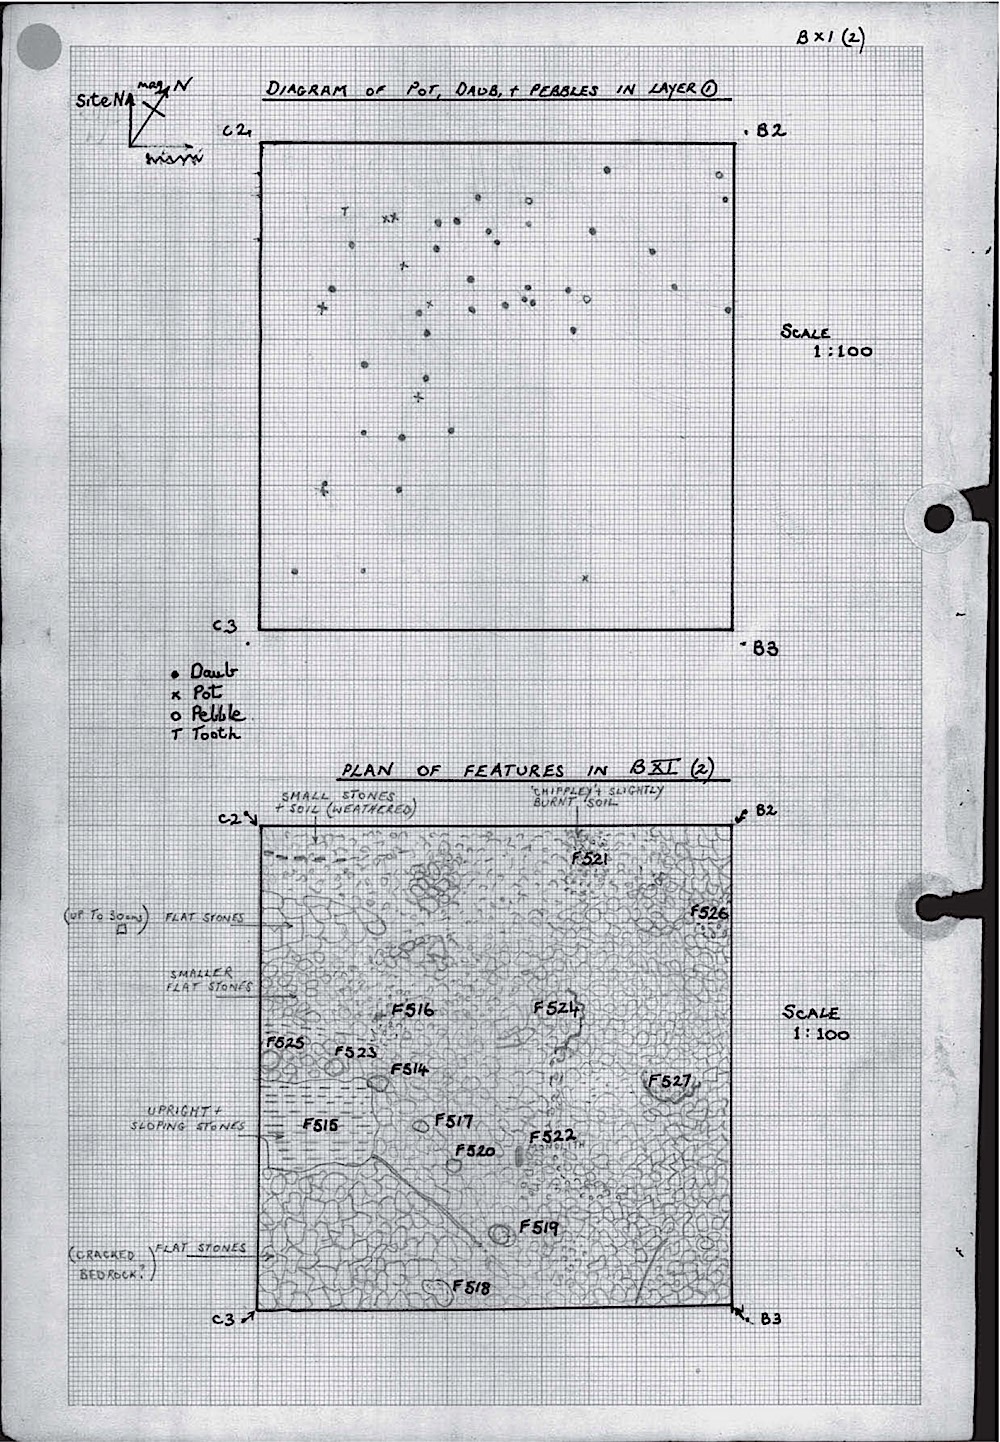 B X I (2)
mag N
Site N
DIAGRAM OF POT, DAUB, + PEBBLES IN LAYER ①
C2
B2
T
SCALE
1:100
C3
B3
• Daub
x Pot
o Pebble
T Tooth
PLAN OF FEATURES IN B XI (2)
SMALL STONES
+ SOIL (WEATHERED)
'CHIPPLEY' + SLIGHTLY
BURNT SOIL
C2
B2
F521
(UP TO 30cms □) FLAT STONES
F526
SMALLER
FLAT STONES
F516
F524
SCALE
1:100
F525
F523
F514
F527
UPRIGHT +
SLOPING STONES
F515
F517
F522
F520
F519
(CRACKED BEDROCK?) FLAT STONES
F518
C3
B3